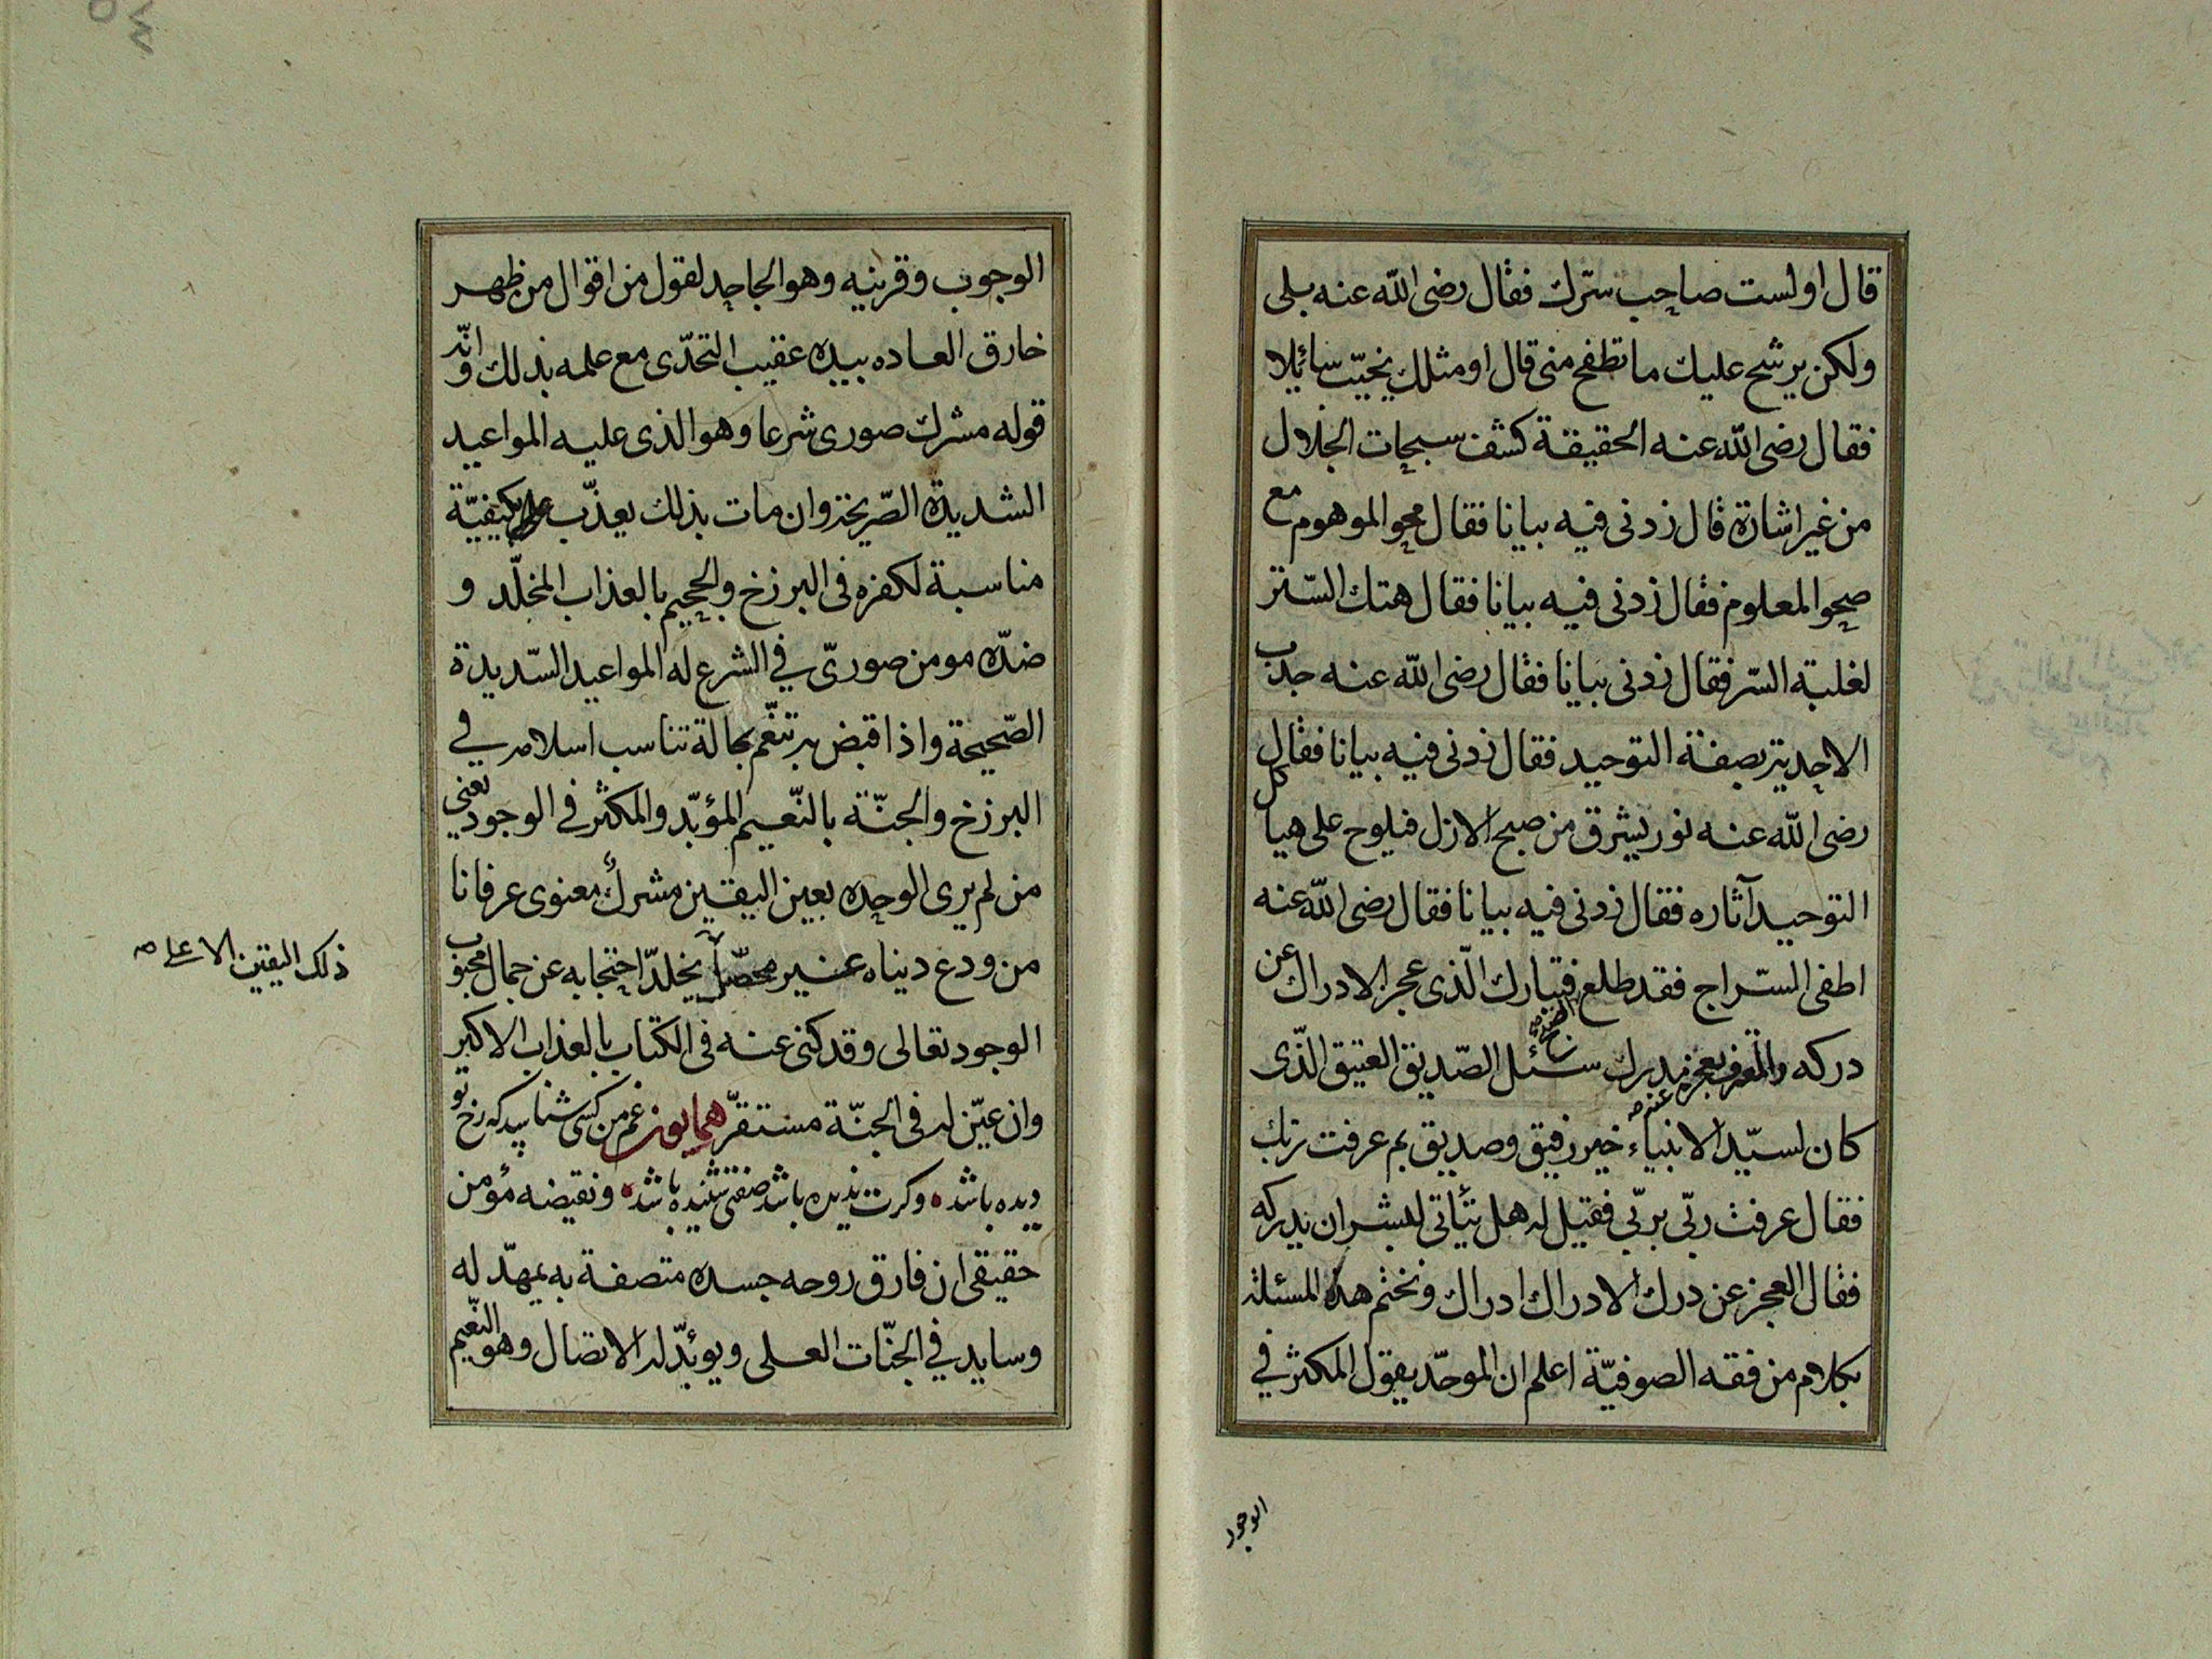 قال اولست صاحب سرّك فقال رضى الله عنه بلى
ولكن يرشح عليك ما تطفح منى قال او مثلك يخيّب سائلا
فقال رضى الله عنه الحقيقة كشف سبحات الجلال
من غير اشارة قال زدنى فيه بيانا فقال محو الموهوم مع
صحو المعلوم فقال زدنى فيه بيانا فقال هتك السّتر
لغلبة السّر فقال زدنى بيانا فقال رضى الله عنه جذب
الاحدية بصفة التوحيد فقال زدنى فيه بيانا فقال
رضى الله عنه نور يشرق من صبح الازل فيلوح على هياكل
التوحيد آثاره فقال زدنى فيه بيانا فقال رضى الله عنه
اطفى السّراج فقد طلع فتبارك الّذى عجز الادراك عن
دركه سئل الصّديق العتيق الّذى
كان لسيّد الانبياء خير رفيق وصديق بم عرفت ربك
فقال عرفت ربّى بربّى فقيل له هل يتأتى لبشر ان يدركه
فقال العجز عن درك الادراك ادراك ونختم هذه المسئلة
بكلام من فقه الصوفيّة اعلم ان الموحّد يقول المكثر في
الوجود
الوجوب وقرينيه وهو الجاحد لقول من اقوال من ظهر
خارق العاده بيده عقيب التحدّى مع علمه بذلك وانّه
قوله مشرك صورى شرعا وهو الذى عليه المواعيد
الشديدة الصّريحة وان مات بذلك يعذّب بكيفيّة
مناسبة لكفره فى البرزخ والجحيم بالعذاب المخلّد و
ضدّه مومن صورىّ في الشرع له المواعيد السّديدة
الصّحيحة واذا قبض به تنعّم بحالة تناسب اسلامه في
البرزخ والجنّة بالنّعيم المؤبّد والمكثر فى الوجود يعني
من لم يرى الوحده بعين اليقين مشرك معنوى عرفانا
من ودع ديناه غير محصّل يخلد احتجابه عن جمال محبوب
ذلك اليقين الاعلى صح
الوجود تعالى وقد كنى عنه فى الكتاب بالعذاب الاكبر
وان عيّن له فى الجنّة مستقرّ همايون غم من كسى شناسد كه رخ تو
ديده باشد وكرت نديده باشد صفتى شنيده باشد ونقيضه مؤمن
حقيقى ان فارق روحه جسده متصفة به يمهّد له
وسايد في الجنّات العلى ويوبّد له الاتصال وهو النّعيم